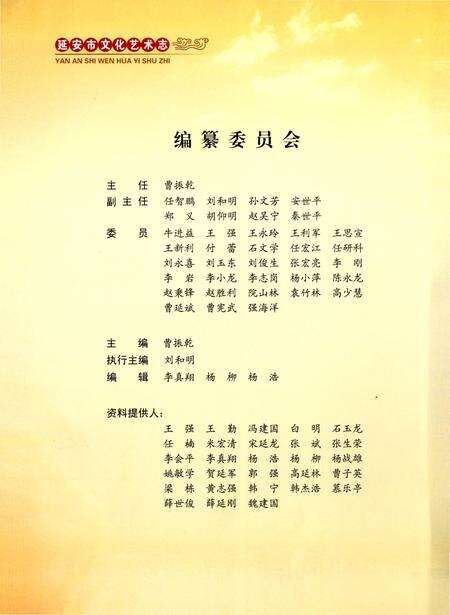 延安市文化艺术志
YAN AN SHI WEN HUA YI SHU ZHI
编纂委员会
主 任 曹振乾
副主任 任智鹏 刘和明 孙文芳 安世平
郑 义 胡仰明 赵吴宁 秦世平
委 员 牛进益 王 强 王永玲 王利军 王思宣
王新利 付 蕾 石文学 任宏江 任研科
刘永喜 刘玉东 刘俊生 张宏亮 李 刚
李 岩 李小龙 李志岗 杨小萍 陈永龙
赵秉锋 赵胜利 院山林 袁竹林 高少慧
曹延斌 曹宪武 强海洋
主 编 曹振乾
执行主编 刘和明
编 辑 李真翔 杨 柳 杨 浩
资料提供人：
王 强 王 勤 冯建国 白 明 石玉龙
任 楠 朱宏清 宋延龙 张 斌 张生荣
李会平 李真翔 杨 浩 杨 柳 杨战雄
姚敏学 贺延军 郭 强 高延林 曹子英
梁 栋 黄志强 韩 宁 韩杰浩 慕乐亭
薛世俊 薛延刚 魏建国